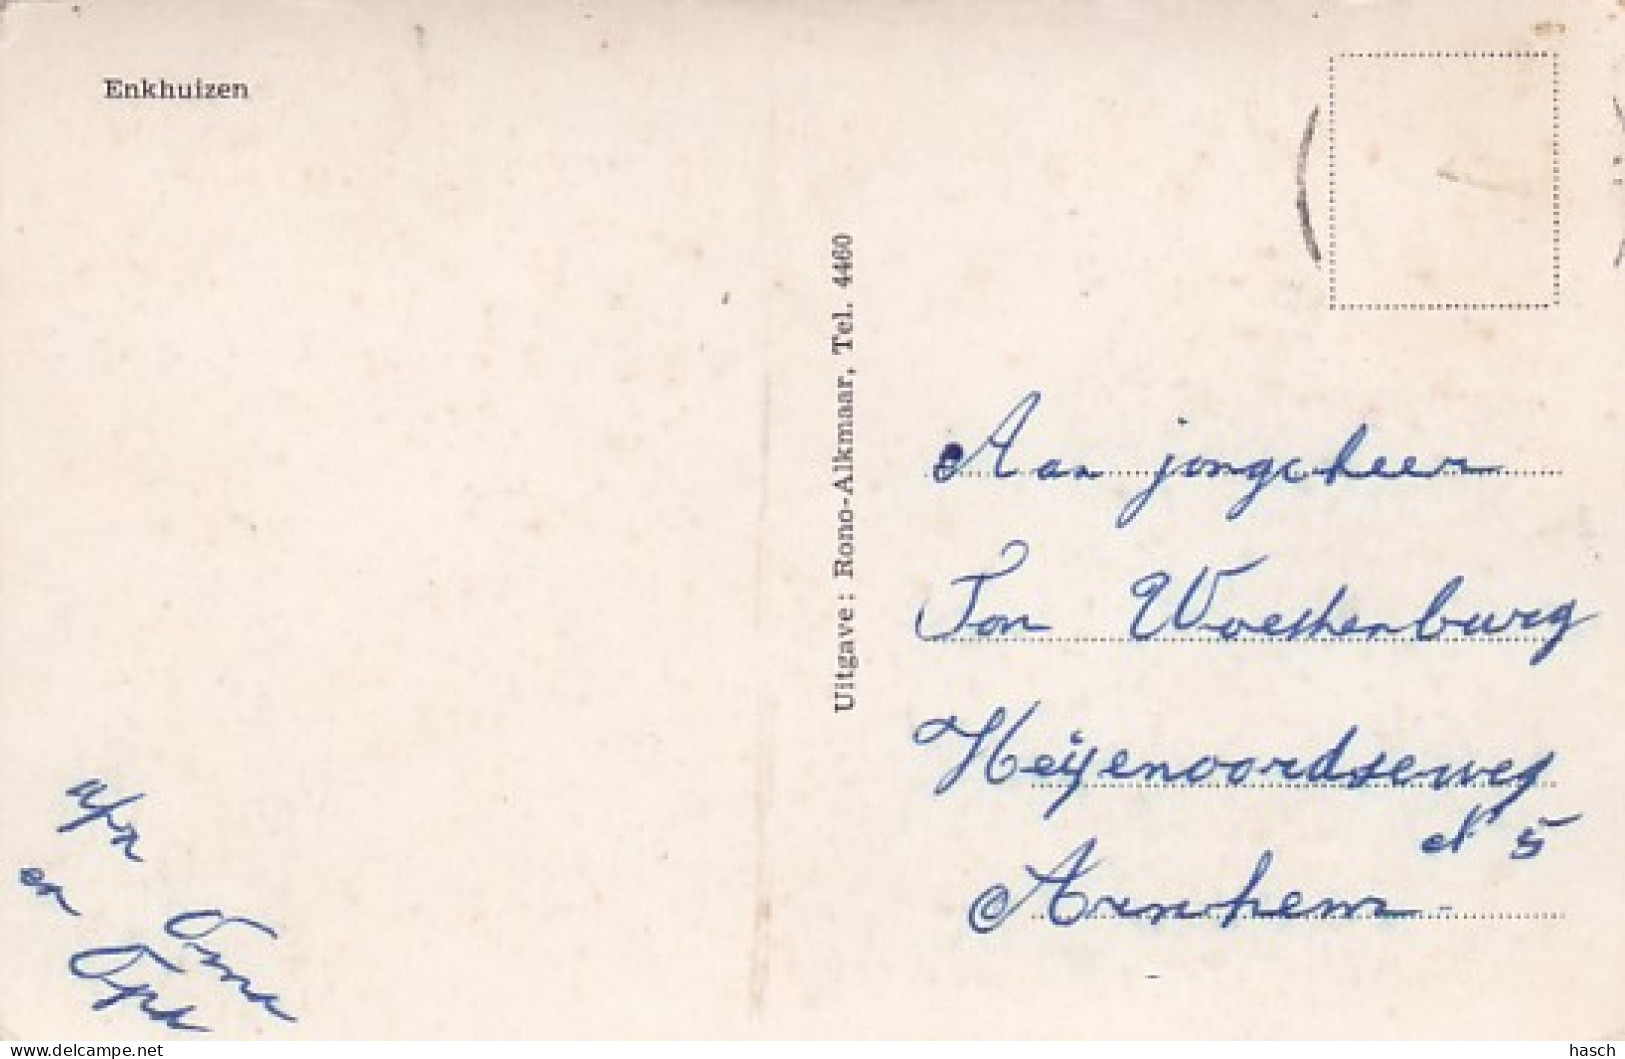 Enkhuizen
Uitgave: Rono-Alkmaar, Tel. 4460
Aan jongeheer
Ton Woestenburg
Heijenoordseweg
N 5
Arnhem
afz
en Oma
Opa
www.delcampe.net
hasch